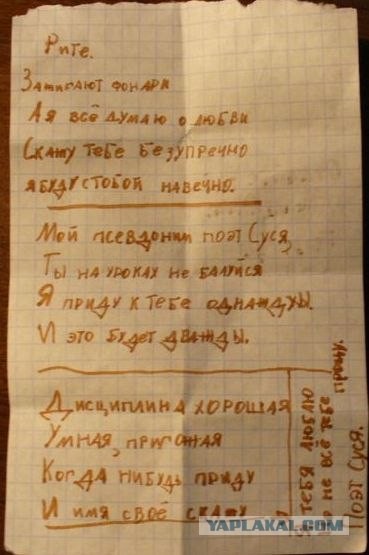 Рите.
Зажигают фонари
А я всё думаю о любви
Скажу тебе безупречно
я буду стобой навечно.
Мой псевдоним поэт Суся,
Ты на уроках не балуйся
Я приду к тебе однажды.
И это будет дважды.
Дисциплина хорошая
Умная, пригожая
Когда нибудь приду
И имя своё скажу
тебя люблю
но не всё тебе
прощу.
Поэт Суся.
YAPLAKAL.COM